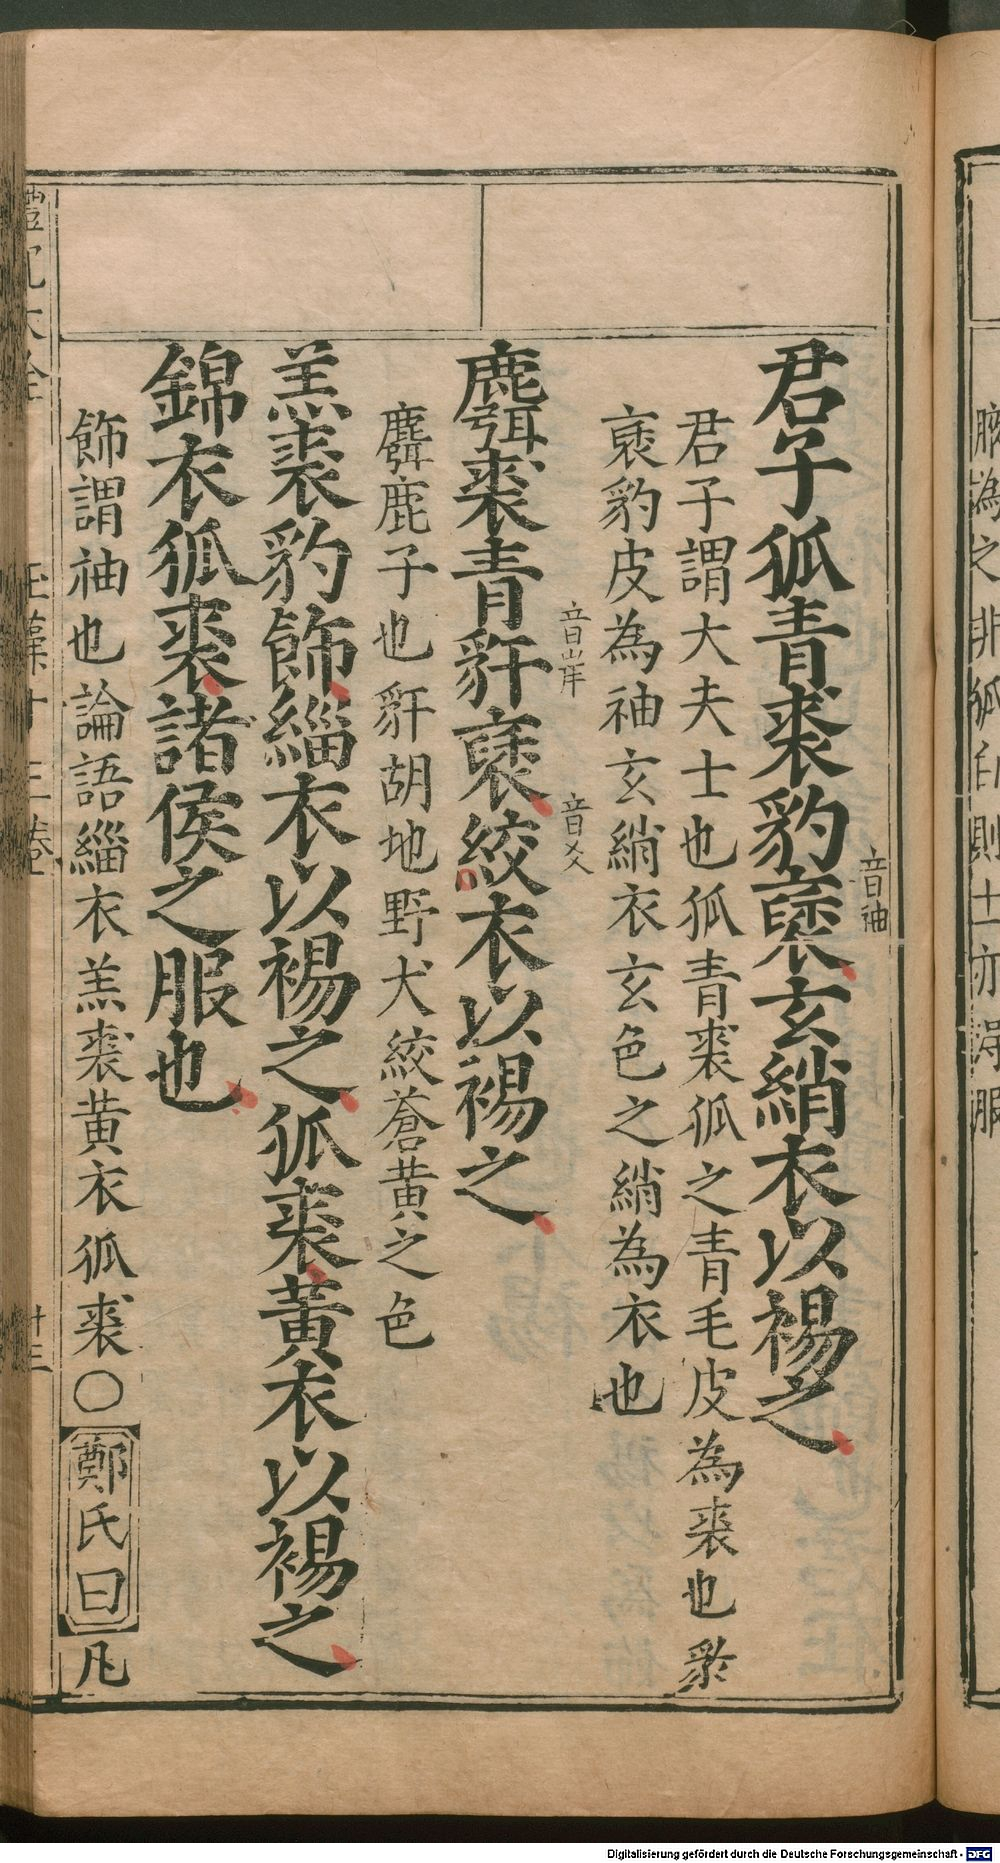 腋為之非狐白則士亦得服
君子狐青裘豹褎玄綃衣以裼之
音袖
君子謂大夫士也狐青裘狐之青毛皮為裘也豹
褎豹皮為袖玄綃衣玄色之綃為衣也
麛裘青豻褎絞衣以裼之
音岸
音爻
麛鹿子也豻胡地野犬絞蒼黃之色
羔裘豹飾緇衣以裼之狐裘黃衣以裼之
錦衣狐裘諸侯之服也
飾謂袖也論語緇衣羔裘黃衣狐裘〇鄭氏曰凡
禮記大全
玉藻十三卷
十三
Digitalisierung gefördert durch die Deutsche Forschungsgemeinschaft - DFG